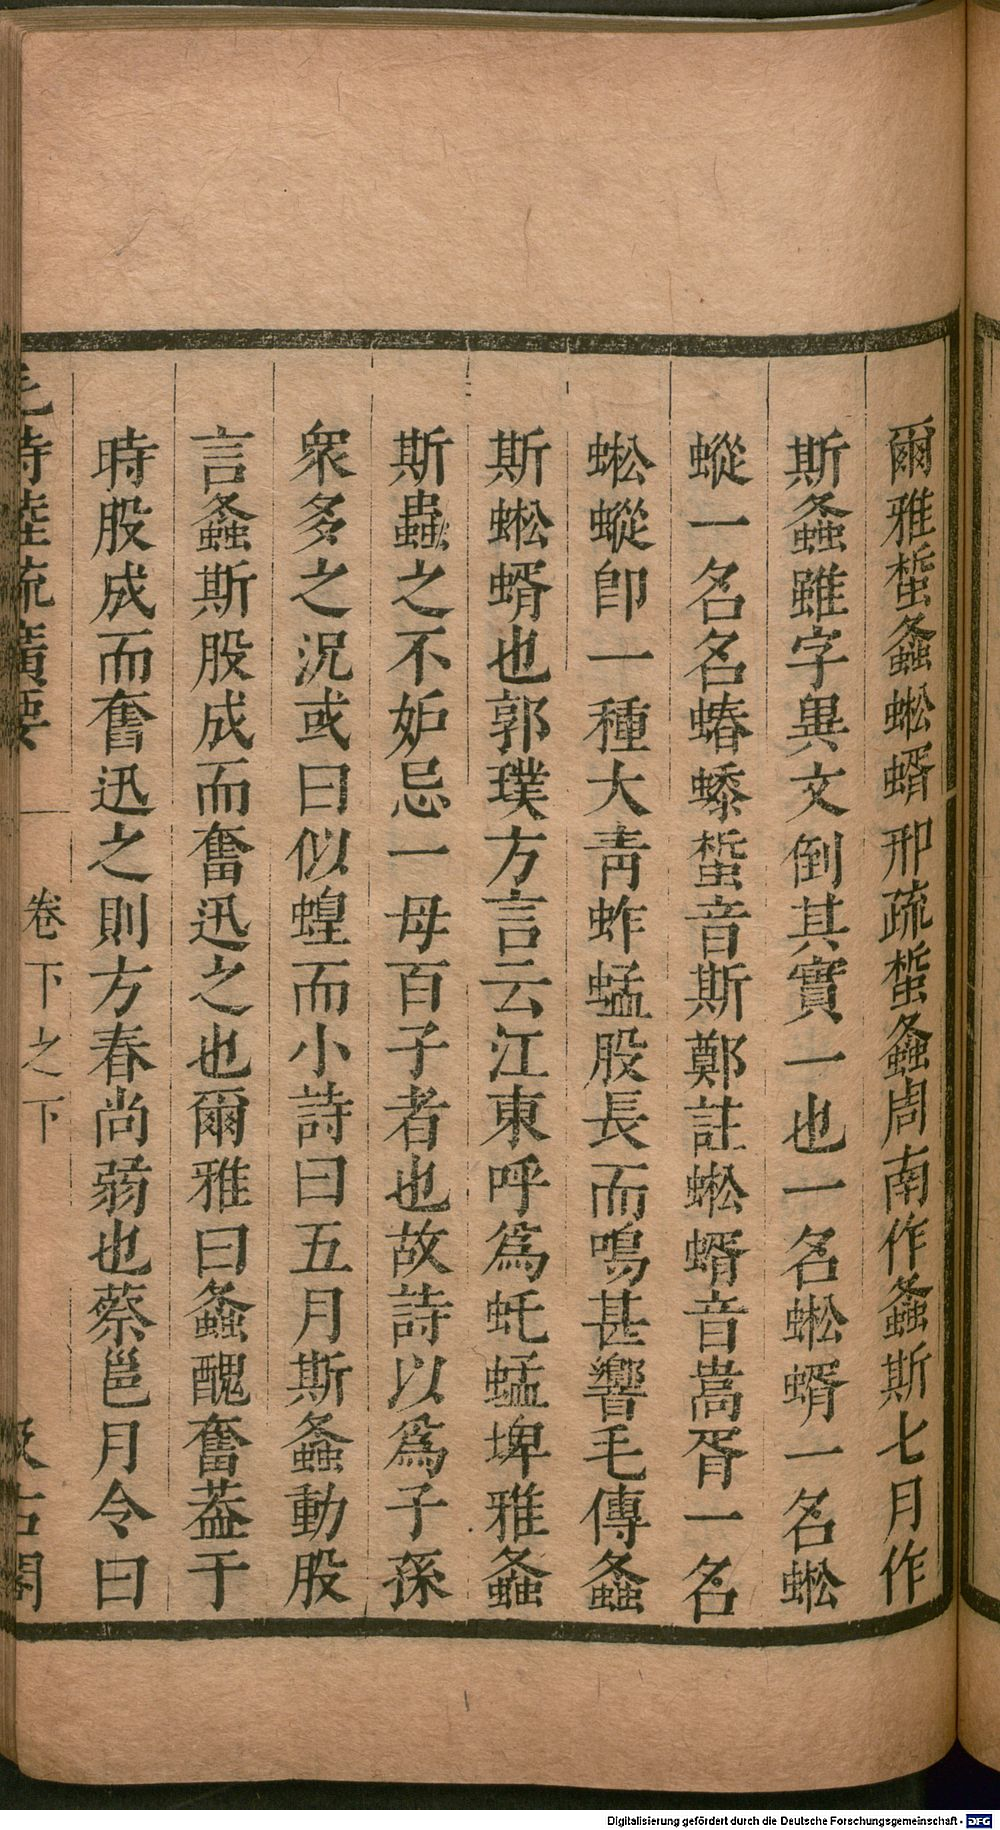 爾雅蜤螽蜙蝑邢疏蜤螽周南作螽斯七月作
斯螽雖字異文倒其實一也一名蜙蝑一名蜙
蝑一名名蝽蟍蜤音斯鄭註蜙蝑音嵩胥一名
蜙蝑卽一種大青蚱蜢股長而鳴甚響毛傳螽
斯蜙蝑也郭璞方言云江東呼爲虴蜢埤雅螽
斯蟲之不妒忌一母百子者也故詩以爲子孫
衆多之況或曰似蝗而小詩曰五月斯螽動股
言螽斯股成而奮迅之也爾雅曰螽醜奮葢于
時股成而奮迅之則方春尚弱也蔡邕月令曰
毛詩陸疏廣要 卷下之下 汲古閣
Digitalisierung gefördert durch die Deutsche Forschungsgemeinschaft - DFG